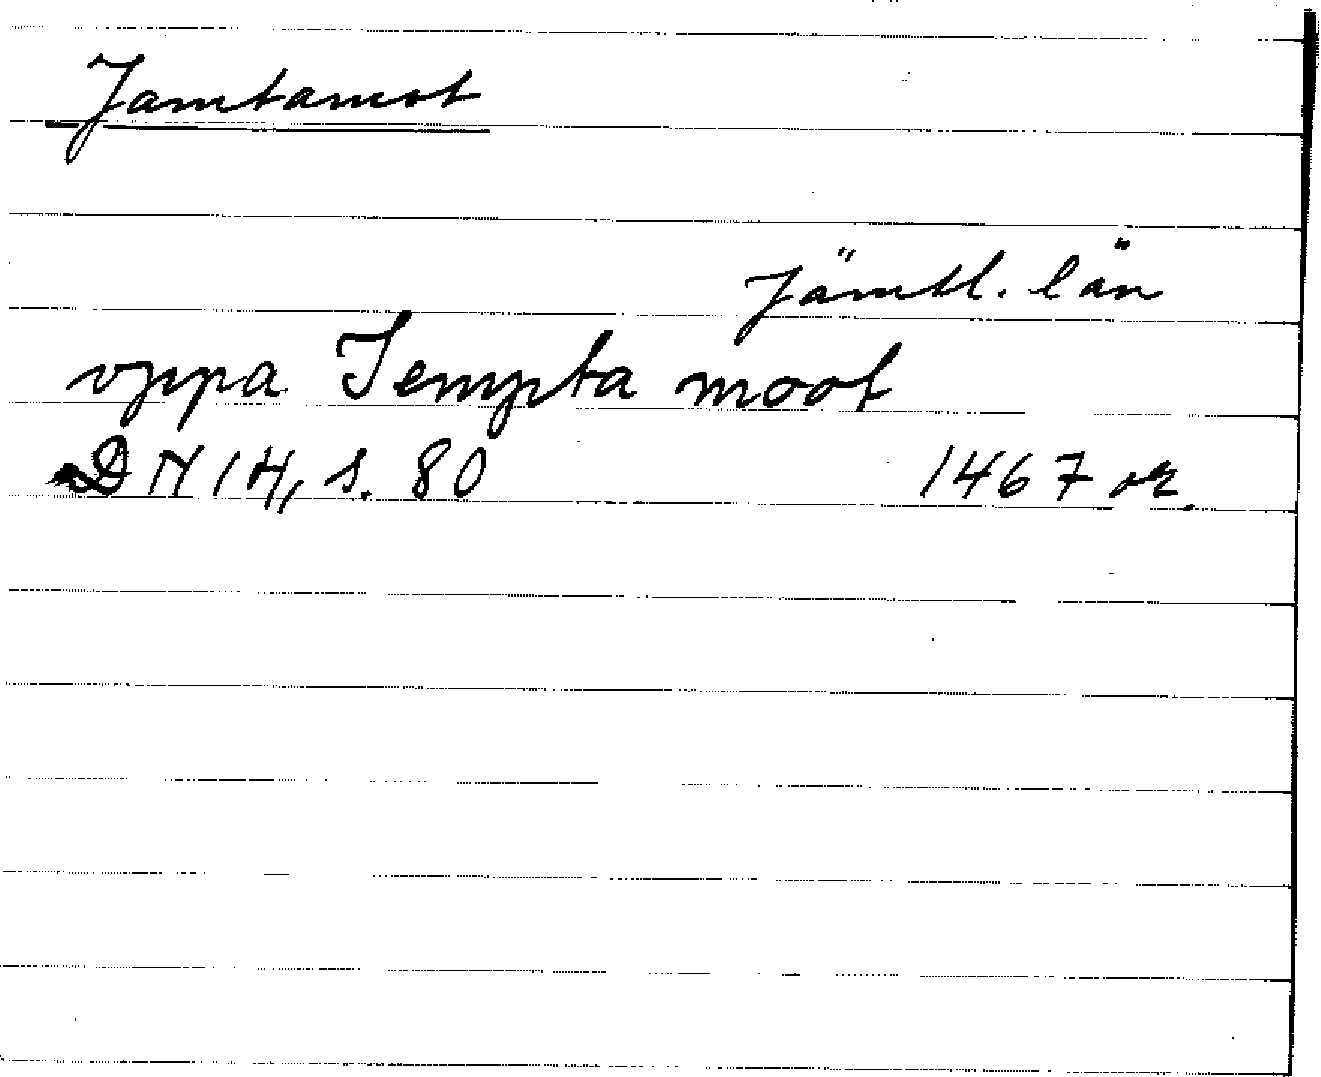 Jamtamot
Jämtl. län
vppa Jempta moot
DN 14, s. 80 1467 or.